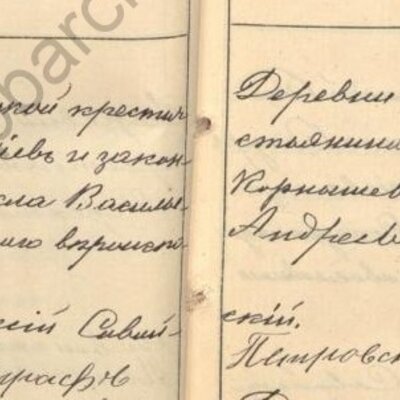 кой крестья
ьевъ и закон-
сла Василь-
его вѣроиспо-
кій Савой-
Деревни
стьянина
Корнышев
Андреев
скій.
Петровск